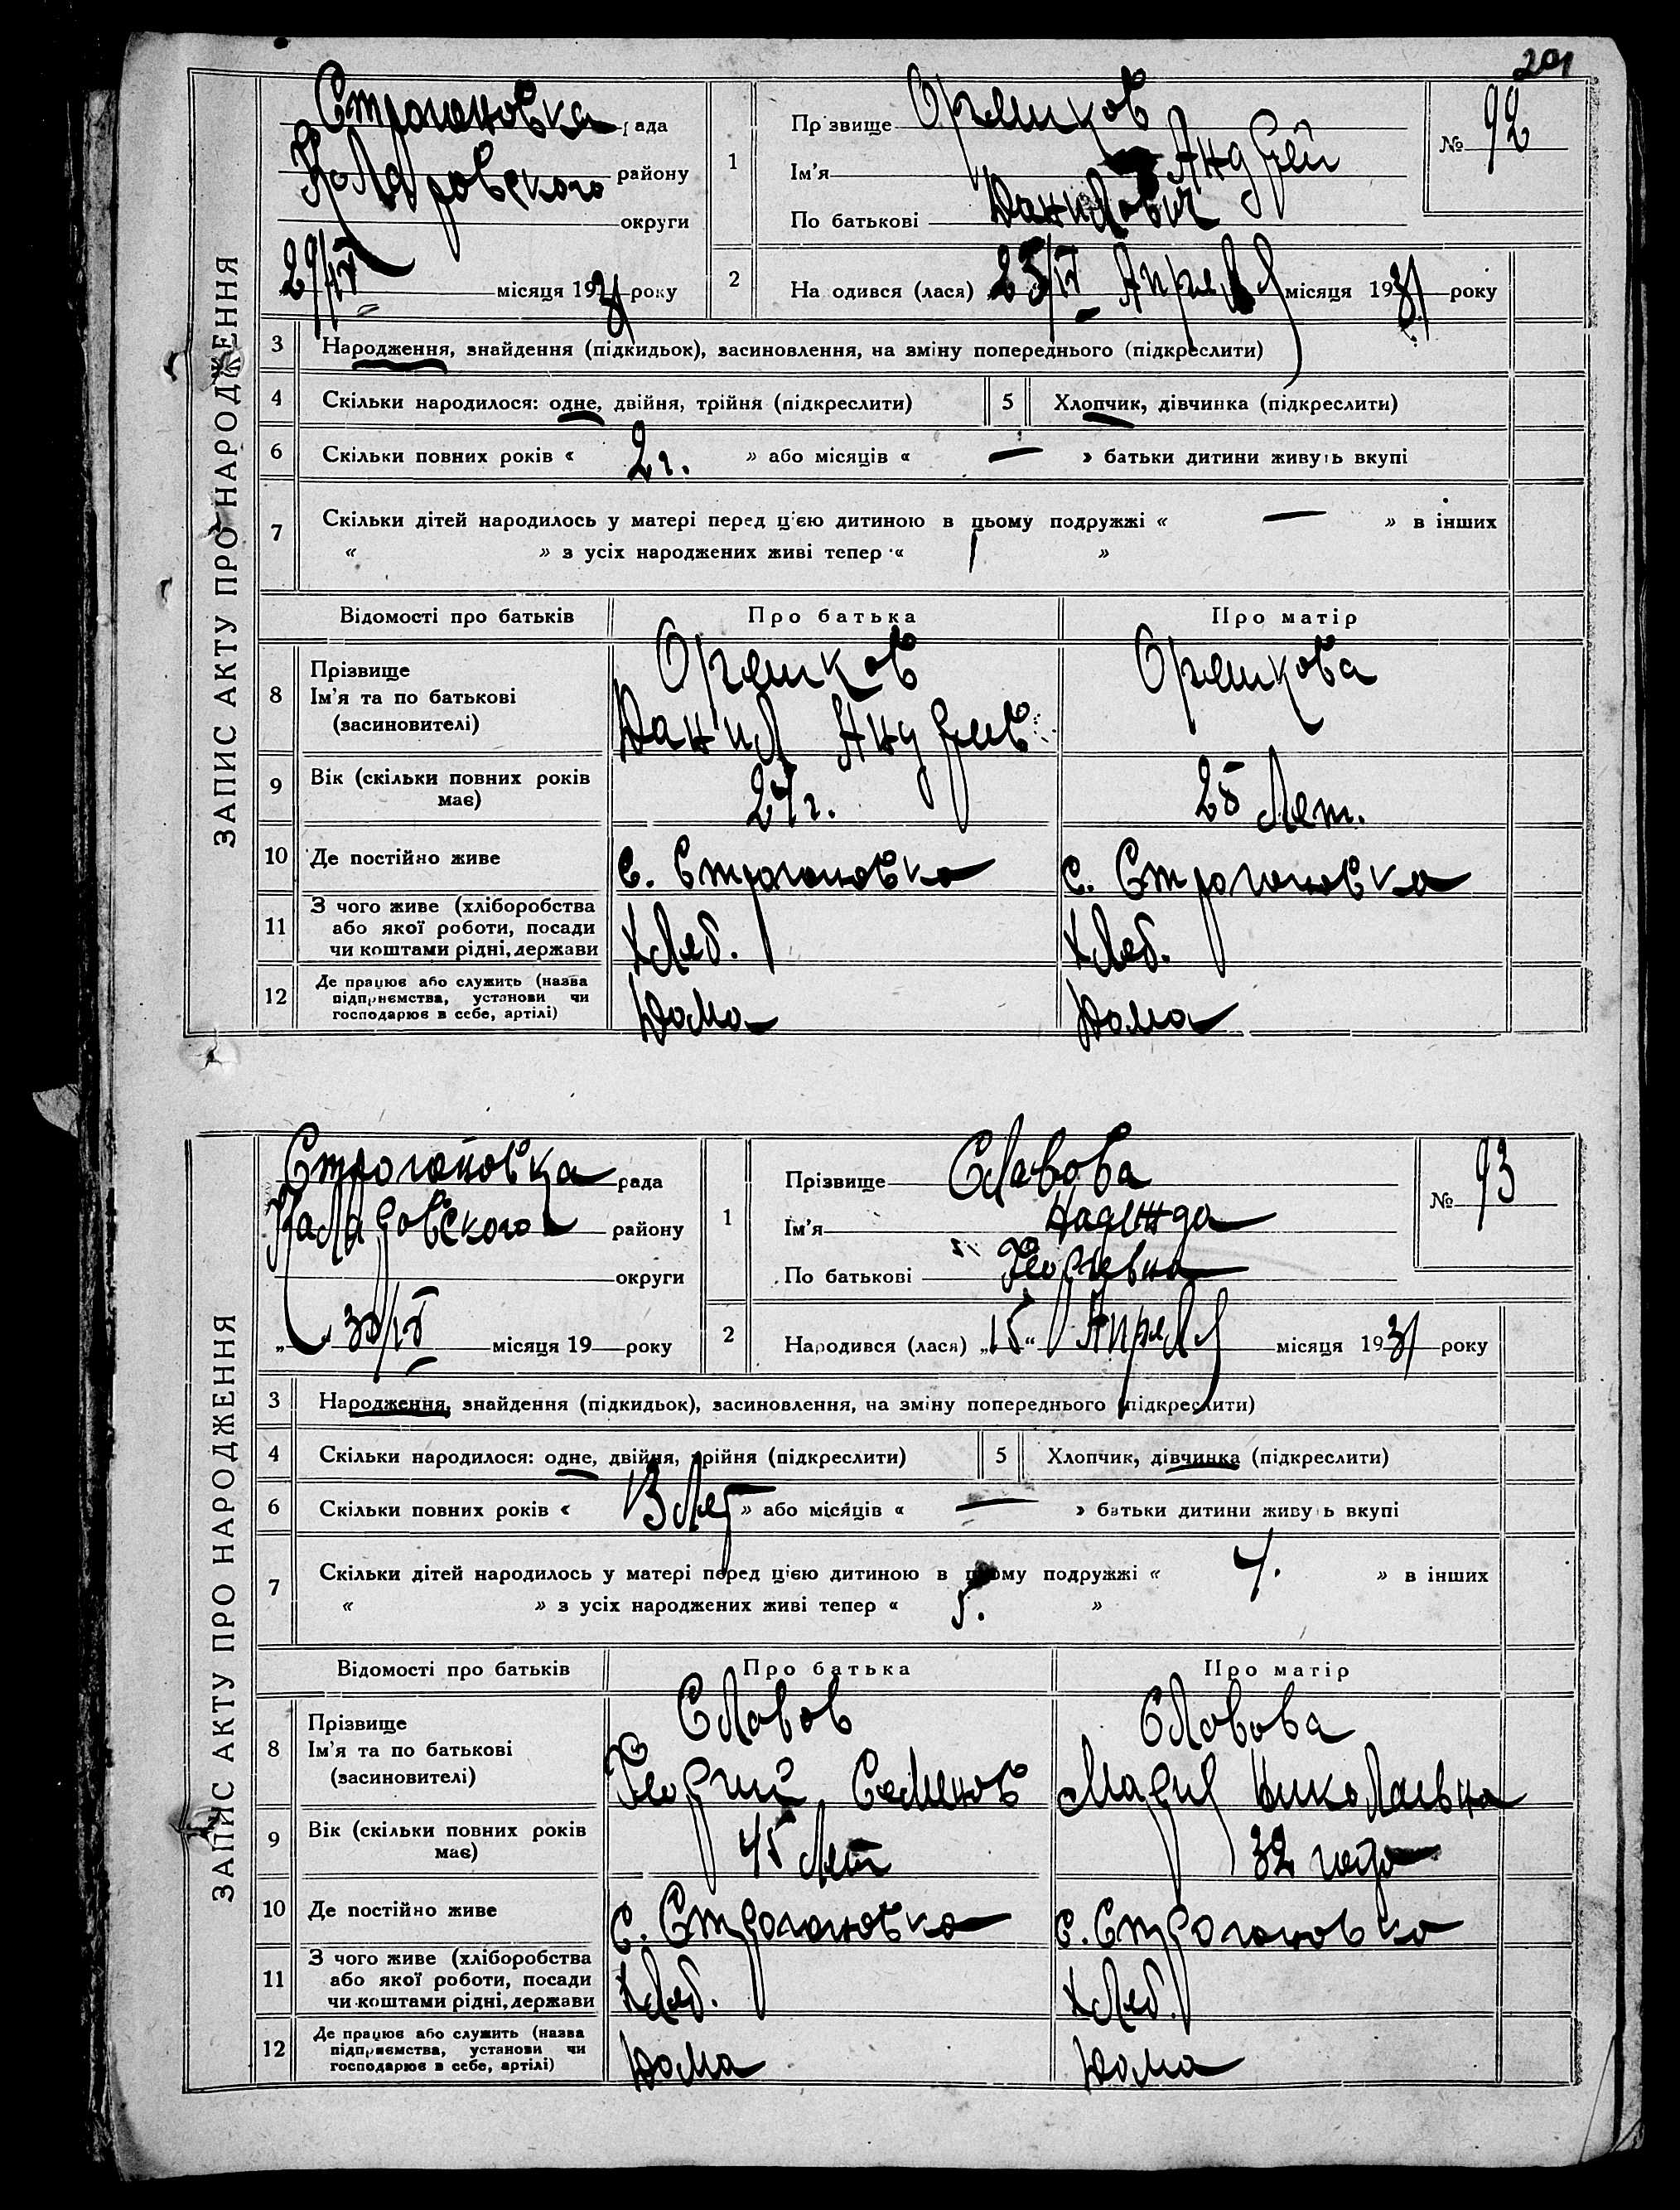 201
ЗАПИС АКТУ ПРО НАРОДЖЕННЯ
Строгоновка рада
Коларовского району
округи
29/IV місяця 1931 року
1
Прізвище Орешков
Ім'я Андрей
По батькові Данилович
№ 92
2
На одився (лася) 25/IV Апреля місяця 1931 року
3 Народження, знайдення (підкидьок), засиновлення, на зміну попереднього (підкреслити)
4 Скільки народилося: одне, двійня, трійня (підкреслити) 5 Хлопчик, дівчинка (підкреслити)
6 Скільки повних років « 2 г. » або місяців « — » батьки дитини живуть вкупі
7 Скільки дітей народилось у матері перед цією дитиною в цьому подружжі « — » в інших
« » з усіх народжених живі тепер « 1 »
Відомості про батьків Про батька Про матір
8 Прізвище Орешков Орешкова
Ім'я та по батькові
(засиновителі) Данил Андреев
9 Вік (скільки повних років
має) 24 г. 25 Лет.
10 Де постійно живе с. Строгоновка с. Строгоновка
11 З чого живе (хліборобства
або якої роботи, посади
чи коштами рідні, держави Хлеб. Хлеб.
12 Де працює або служить (назва
підприємства, установи чи
господарює в себе, артілі) Дома Дома
ЗАПИС АКТУ ПРО НАРОДЖЕННЯ
Строгоновка рада
Каларовского району
округи
„ 30/IV місяця 19 року
1
Прізвище Славова
Ім'я Надежда
По батькові Георгевна
№ 93
2
Народився (лася) „15“ Апреля місяця 1931 року
3 Народження, знайдення (підкидьок), засиновлення, на зміну попереднього (підкреслити)
4 Скільки народилося: одне, двійня, трійня (підкреслити) 5 Хлопчик, дівчинка (підкреслити)
6 Скільки повних років « 13 Лет » або місяців « — » батьки дитини живуть вкупі
7 Скільки дітей народилось у матері перед цією дитиною в цьому подружжі « 4. » в інших
« » з усіх народжених живі тепер « 5. »
Відомості про батьків Про батька Про матір
8 Прізвище Славов Славова
Ім'я та по батькові
(засиновителі) Георгий Семенов Мария Николаевна
9 Вік (скільки повних років
має) 45 Лет 32 года
10 Де постійно живе с. Строгоновка с. Строгоновка
11 З чого живе (хліборобства
або якої роботи, посади
чи коштами рідні, держави Хлеб. Хлеб.
12 Де працює або служить (назва
підприємства, установи чи
господарює в себе, артілі) Дома Дома